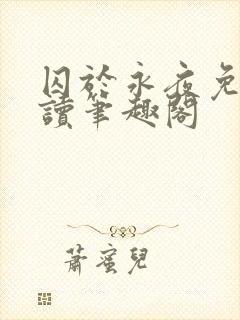 囚於永夜免
讀筆趣閣
蕭蜜兒